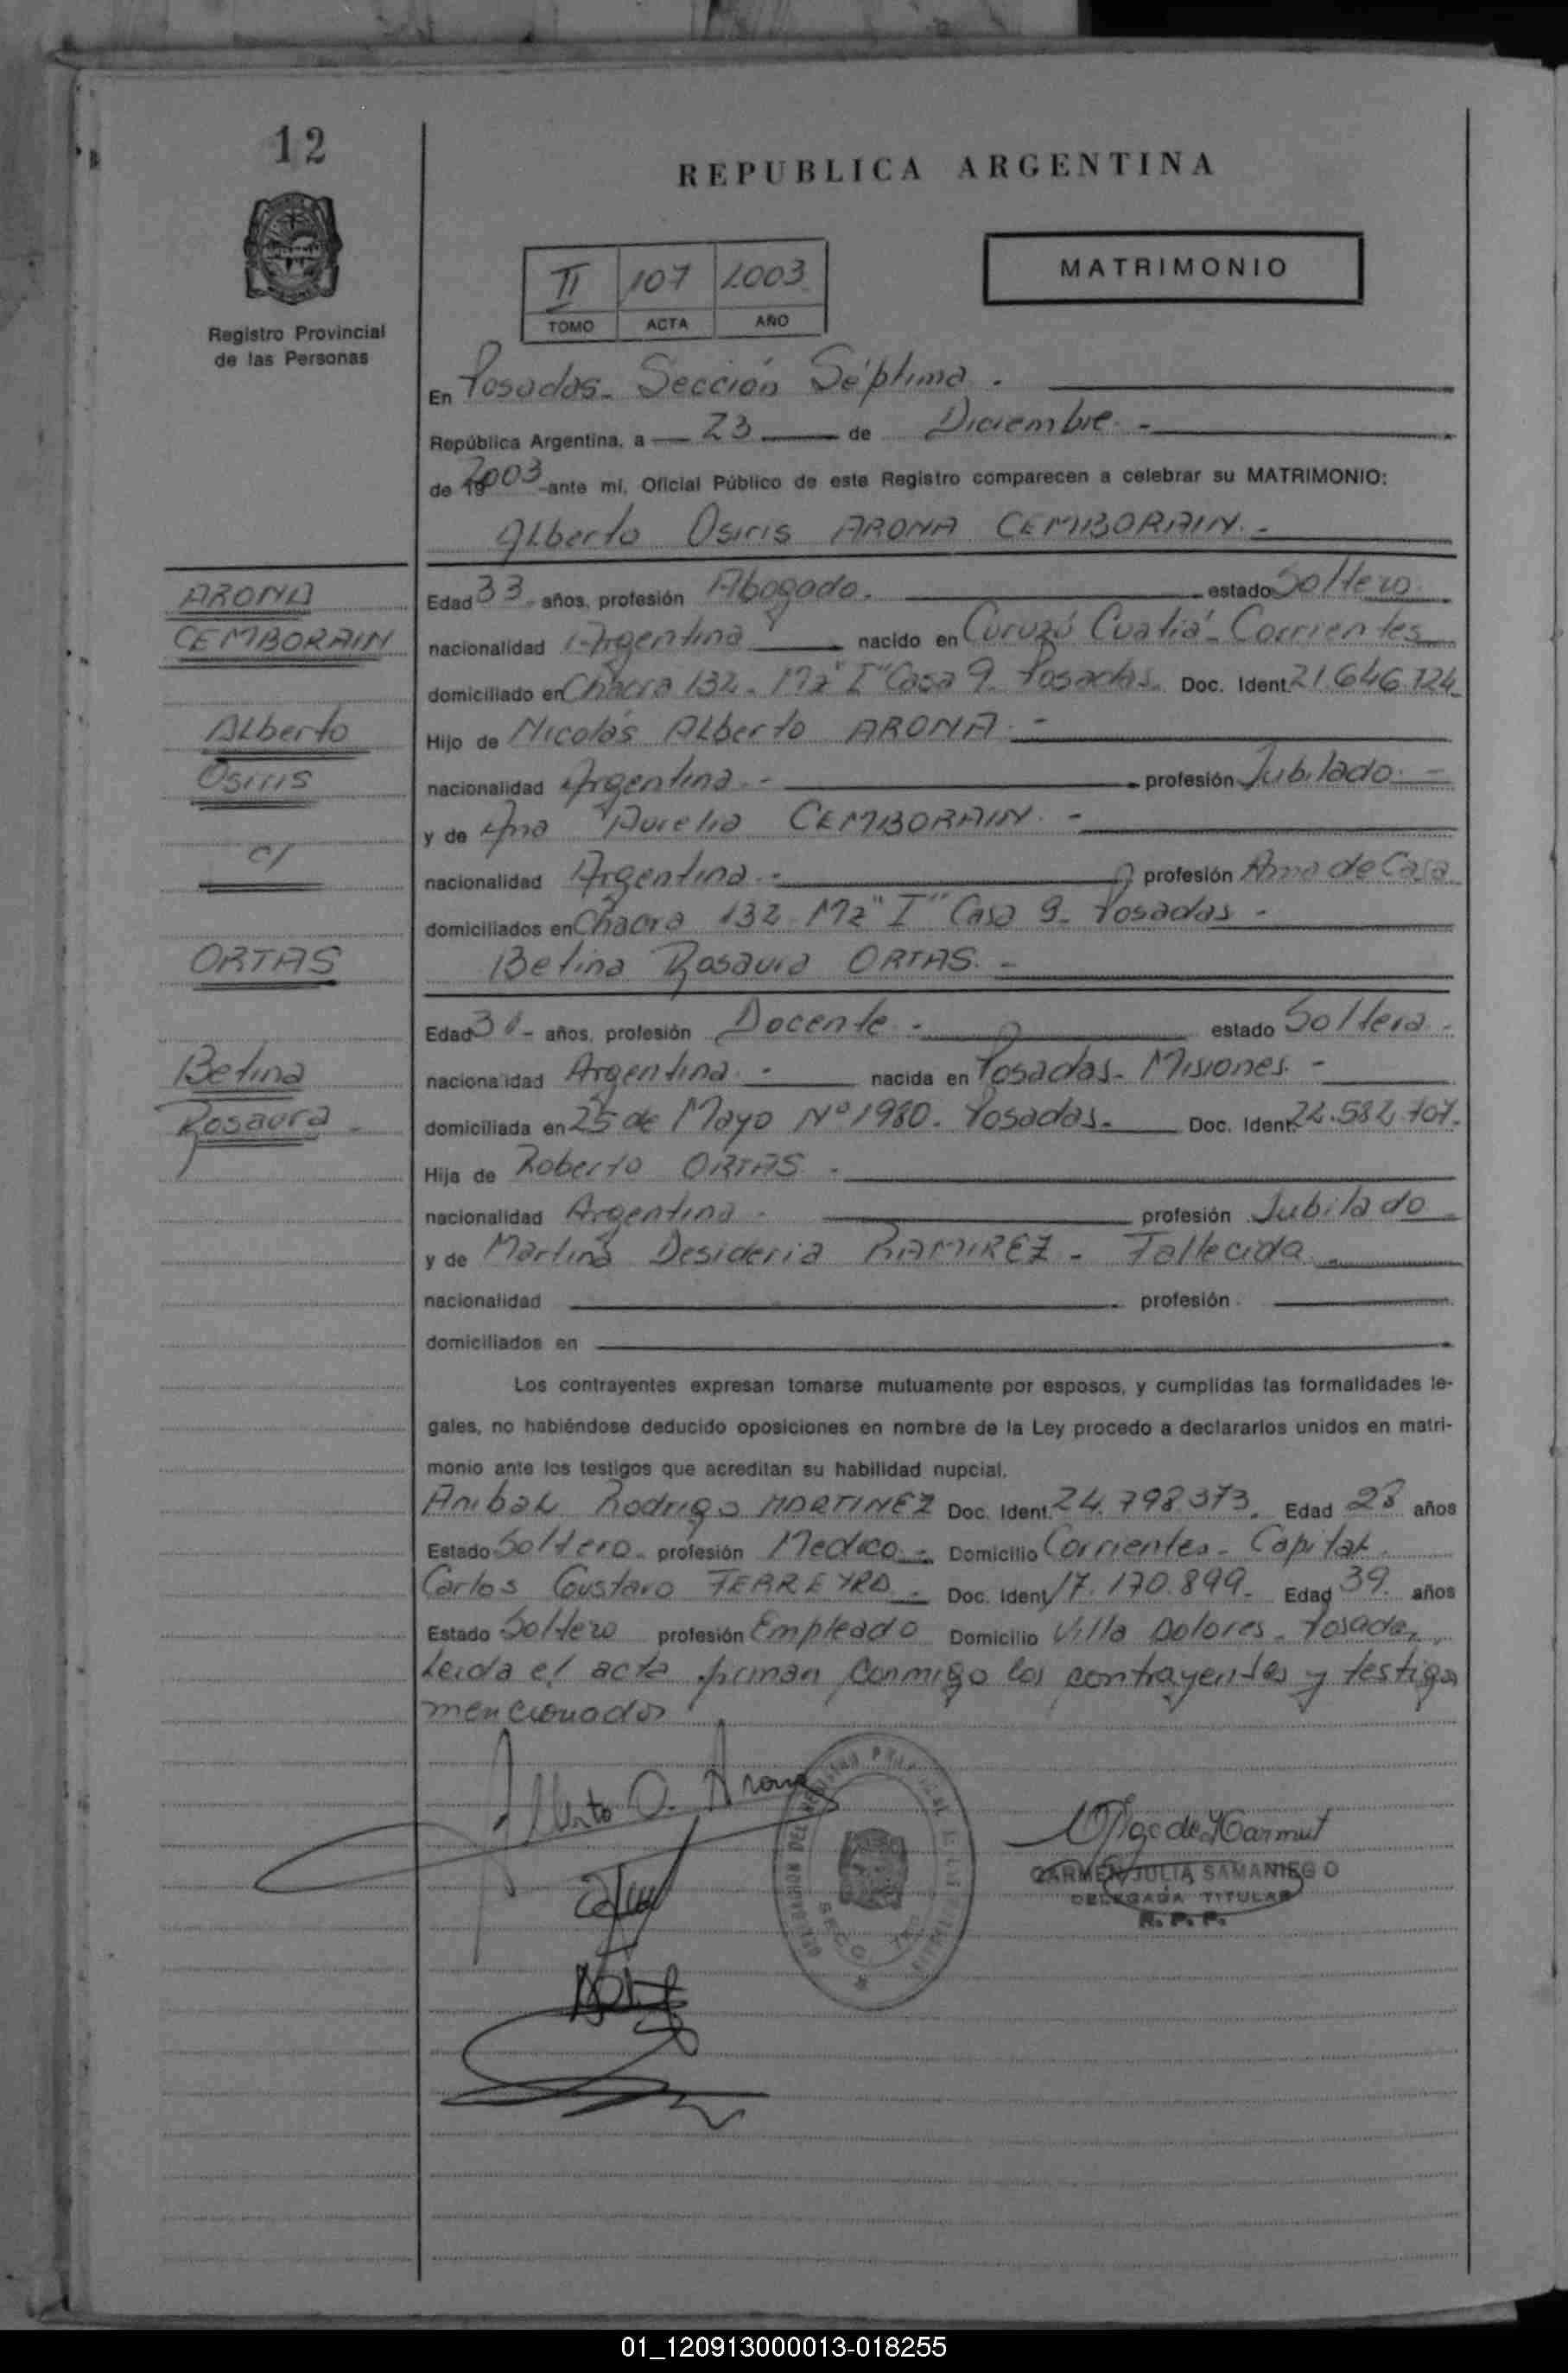 12
REPUBLICA ARGENTINA
Registro Provincial
de las Personas
II 107 2003
TOMO ACTA AÑO
MATRIMONIO
En Posadas - Sección Séptima.
República Argentina, a 23 de Diciembre.-
de 2003 ante mí, Oficial Público de este Registro comparecen a celebrar su MATRIMONIO:
Alberto Osiris ARONA CEMBORAIN.-
ARONA
CEMBORAIN
Alberto
Osiris
c/
ORTAS
Betina
Rosaura
Edad 33 años, profesión Abogado. estado Soltero.
nacionalidad Argentina nacido en Curuzú Cuatiá - Corrientes
domiciliado en Chacra 132 - Mz "I" Casa 9 - Posadas. Doc. Ident. 21.646.724
Hijo de Nicolás Alberto ARONA.-
nacionalidad Argentina.- profesión Jubilado.-
y de Ana Aurelia CEMBORAIN.-
nacionalidad Argentina.- profesión Ama de Casa
domiciliados en Chacra 132 Mz "I" Casa 9 - Posadas -
Betina Rosaura ORTAS.-
Edad años, profesión Docente.- estado Soltera.-
nacionalidad Argentina.- nacida en Posadas - Misiones.-
domiciliada en 25 de Mayo Nº 1980. Posadas. Doc. Ident. 22.582.707.
Hija de Roberto ORTAS.
nacionalidad Argentina.- profesión Jubilado
y de Martina Desideria RAMIREZ - Fallecida
nacionalidad profesión
domiciliados en
Los contrayentes expresan tomarse mutuamente por esposos, y cumplidas las formalidades le-
gales, no habiéndose deducido oposiciones en nombre de la Ley procedo a declararlos unidos en matri-
monio ante los testigos que acreditan su habilidad nupcial.
Anibal Rodrigo MARTINEZ Doc. Ident. 24.798.373. Edad 28 años
Estado Soltero. profesión Medico.- Domicilio Corrientes - Capital.
Carlos Gustavo FERREYRA.- Doc. Ident. 17.170.899. Edad 39 años
Estado Soltero profesión Empleado Domicilio Villa Dolores - Posadas.
Leida el acta firman conmigo los contrayentes y testigos
mencionados
Alberto O. Arona
CARMEN JULIA SAMANIEGO
DELEGADA TITULAR
R. P. P.
01_120913000013-018255